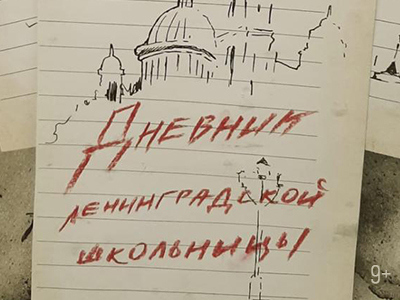 Дневник
ленинградской
школьницы
9+